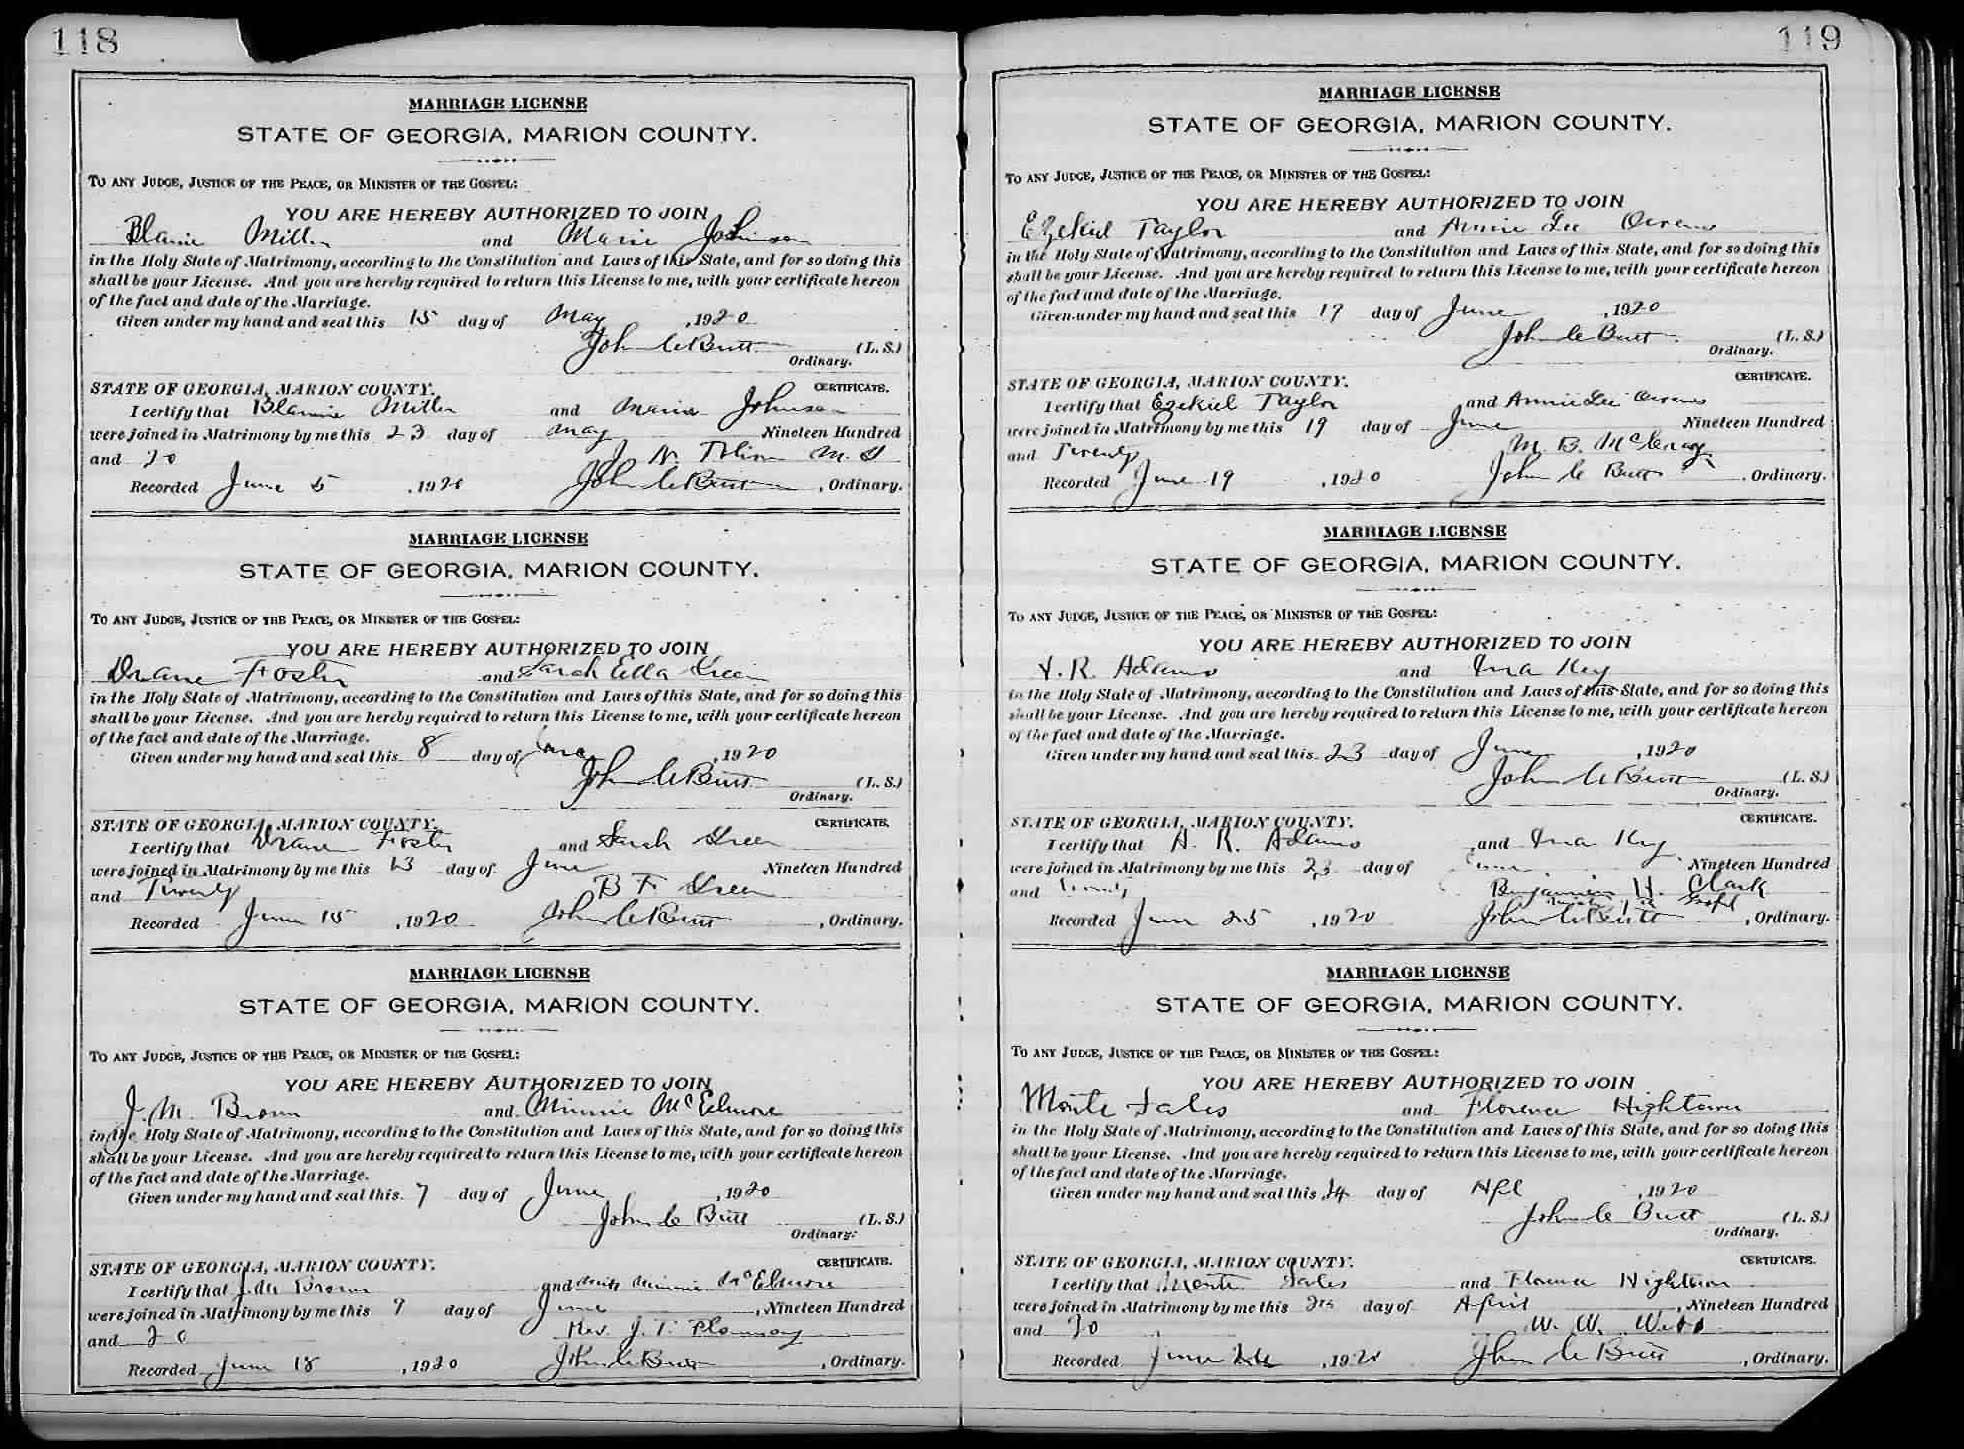 118
MARRIAGE LICENSE
STATE OF GEORGIA, MARION COUNTY.
TO ANY JUDGE, JUSTICE OF THE PEACE, OR MINISTER OF THE GOSPEL:
YOU ARE HEREBY AUTHORIZED TO JOIN
Miller and Marie Johnson
in the Holy State of Matrimony, according to the Constitution and Laws of this State, and for so doing this
shall be your License. And you are hereby required to return this License to me, with your certificate hereon
of the fact and date of the Marriage.
Given under my hand and seal this 15 day of May, 1920
John C Butt (L. S.)
Ordinary.
STATE OF GEORGIA, MARION COUNTY. CERTIFICATE.
I certify that Miller and Marie Johnson
were joined in Matrimony by me this 23 day of May Nineteen Hundred
and 20 J. N.
Recorded June 5, 1920 John C Butt, Ordinary.
MARRIAGE LICENSE
STATE OF GEORGIA, MARION COUNTY.
TO ANY JUDGE, JUSTICE OF THE PEACE, OR MINISTER OF THE GOSPEL:
YOU ARE HEREBY AUTHORIZED TO JOIN
Drane Foster and Sarah Ella Green
in the Holy State of Matrimony, according to the Constitution and Laws of this State, and for so doing this
shall be your License. And you are hereby required to return this License to me, with your certificate hereon
of the fact and date of the Marriage.
Given under my hand and seal this 8 day of, 1920
John C Butt (L. S.)
Ordinary.
STATE OF GEORGIA, MARION COUNTY. CERTIFICATE.
I certify that Drane Foster and Sarah Green
were joined in Matrimony by me this 13 day of June Nineteen Hundred
and Twenty B F Green
Recorded June 15, 1920 John C Butt, Ordinary.
MARRIAGE LICENSE
STATE OF GEORGIA, MARION COUNTY.
TO ANY JUDGE, JUSTICE OF THE PEACE, OR MINISTER OF THE GOSPEL:
YOU ARE HEREBY AUTHORIZED TO JOIN
J. M. Brown and Minnie McElmore
in the Holy State of Matrimony, according to the Constitution and Laws of this State, and for so doing this
shall be your License. And you are hereby required to return this License to me, with your certificate hereon
of the fact and date of the Marriage.
Given under my hand and seal this 7 day of June, 1920
John C Butt (L. S.)
Ordinary.
STATE OF GEORGIA, MARION COUNTY. CERTIFICATE.
I certify that J. M. Brown and Miss Minnie McElmore
were joined in Matrimony by me this 7 day of June, Nineteen Hundred
and 20 Rev. J. T. Flournoy
Recorded June 18, 1920 John C Butt, Ordinary.
119
MARRIAGE LICENSE
STATE OF GEORGIA, MARION COUNTY.
TO ANY JUDGE, JUSTICE OF THE PEACE, OR MINISTER OF THE GOSPEL:
YOU ARE HEREBY AUTHORIZED TO JOIN
Ezekiel Taylor and Annie Lee Owens
in the Holy State of Matrimony, according to the Constitution and Laws of this State, and for so doing this
shall be your License. And you are hereby required to return this License to me, with your certificate hereon
of the fact and date of the Marriage.
Given under my hand and seal this 17 day of June, 1920
John C Butt (L. S.)
Ordinary.
STATE OF GEORGIA, MARION COUNTY. CERTIFICATE.
I certify that Ezekiel Taylor and Annie Lee Owens
were joined in Matrimony by me this 19 day of June Nineteen Hundred
and Twenty M. B. McCrary
Recorded June 19, 1920 John C Butt, Ordinary.
MARRIAGE LICENSE
STATE OF GEORGIA, MARION COUNTY.
TO ANY JUDGE, JUSTICE OF THE PEACE, OR MINISTER OF THE GOSPEL:
YOU ARE HEREBY AUTHORIZED TO JOIN
R. Adams and Ina Key
in the Holy State of Matrimony, according to the Constitution and Laws of this State, and for so doing this
shall be your License. And you are hereby required to return this License to me, with your certificate hereon
of the fact and date of the Marriage.
Given under my hand and seal this 23 day of June, 1920
John C Butt (L. S.)
Ordinary.
STATE OF GEORGIA, MARION COUNTY. CERTIFICATE.
I certify that R. Adams and Ina Key
were joined in Matrimony by me this 23 day of June Nineteen Hundred
and Twenty Benjamin H. Clark
Recorded June 25, 1920 John C Butt, Ordinary.
MARRIAGE LICENSE
STATE OF GEORGIA, MARION COUNTY.
TO ANY JUDGE, JUSTICE OF THE PEACE, OR MINISTER OF THE GOSPEL:
YOU ARE HEREBY AUTHORIZED TO JOIN
Monte Sales and Florence Hightower
in the Holy State of Matrimony, according to the Constitution and Laws of this State, and for so doing this
shall be your License. And you are hereby required to return this License to me, with your certificate hereon
of the fact and date of the Marriage.
Given under my hand and seal this 24 day of Apl, 1920
John C Butt (L. S.)
Ordinary.
STATE OF GEORGIA, MARION COUNTY. CERTIFICATE.
I certify that Monte Sales and Florence Hightower
were joined in Matrimony by me this day of April, Nineteen Hundred
and 20 W. W. Webb
Recorded June, 1920 John C Butt, Ordinary.